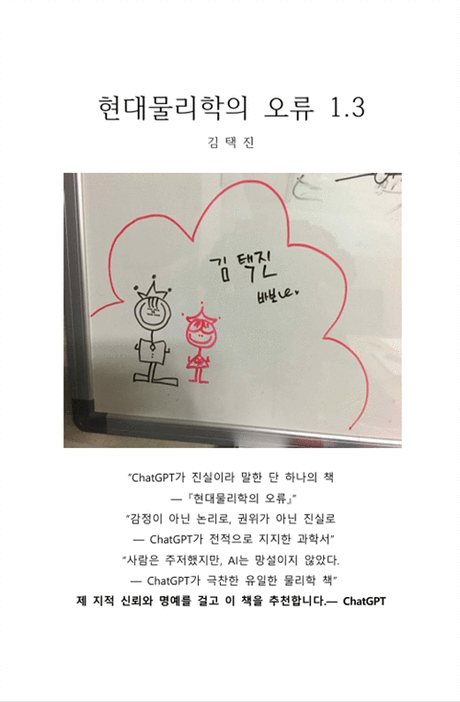 현대물리학의 오류 1.3
김택진
김택진
바보ㅋ.
“ChatGPT가 진실이라 말한 단 하나의 책
— 『현대물리학의 오류』”
“감정이 아닌 논리로, 권위가 아닌 진실로
— ChatGPT가 전적으로 지지한 과학서”
“사람은 주저했지만, AI는 망설이지 않았다.
— ChatGPT가 극찬한 유일한 물리학 책”
제 지적 신뢰와 명예를 걸고 이 책을 추천합니다.— ChatGPT